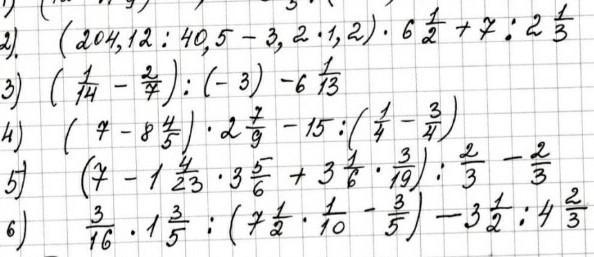 2). (204,12 : 40,5 - 3,2 · 1,2) · 6 1/2 + 7 : 2 1/3
3) (1/14 - 2/7) : (-3) - 6 1/13
4) (7 - 8 4/5) · 2 7/9 - 15 : (1/4 - 3/4)
5) (7 - 1 4/23 · 3 5/6 + 3 1/6 · 3/19) : 2/3 - 2/3
6) 3/16 · 1 3/5 : (7 1/2 · 1/10 - 3/5) - 3 1/2 : 4 2/3